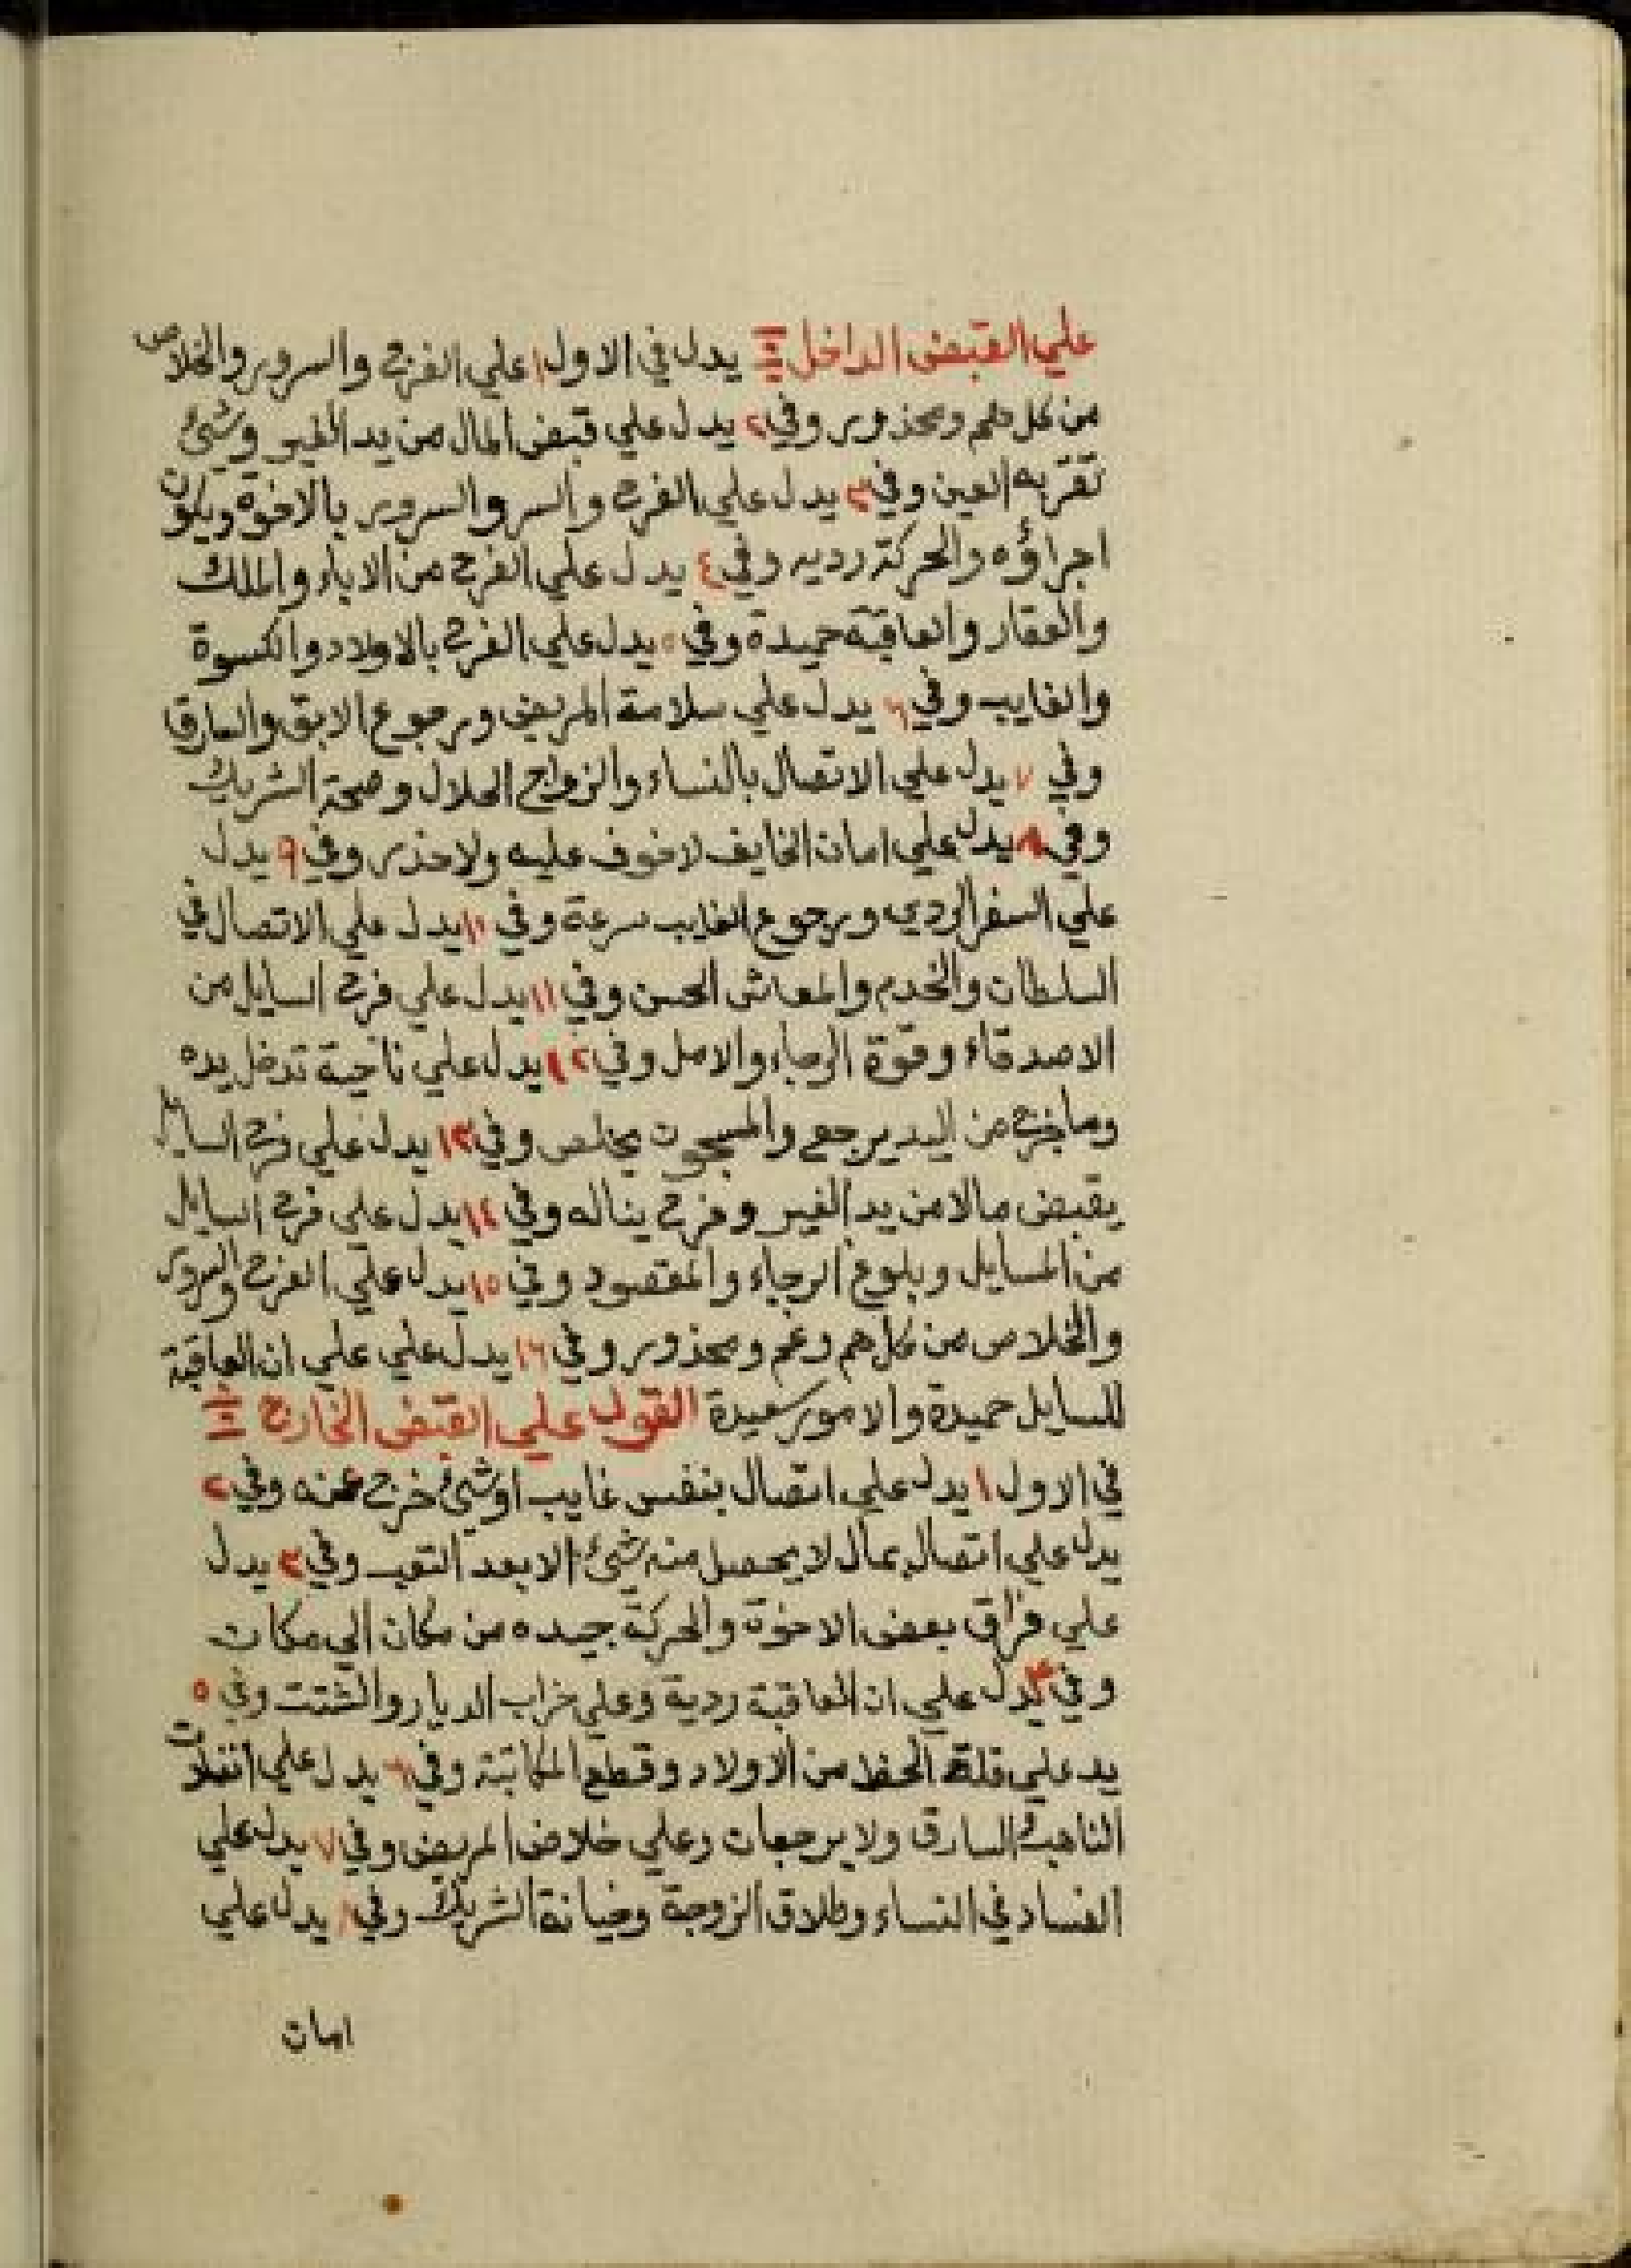 علي القبض الداخل يدل في الاول ١ علي الفرح والسرور والخلاص
من كل هم ومحذور وفي ٢ يدل علي قبض المال من يد الغير وشئ
تقر به العين وفي ٣ يدل علي الفرح والسر والسرور بالاخوة ويكون
اجراؤه والحركة رديه وفي ٤ يدل علي الفرح من الاباء والملك
والعقار والعاقبة حميدة وفي ٥ يدل علي الفرح بالاولاد والكسوة
والغايب وفي ٦ يدل علي سلامة المريض ورجوع الابق والسارق
وفي ٧ يدل علي الاتصال بالنساء والزواج الحلال وصحة الشريك
وفي ٨ يدل علي امان الخايف لاخوف عليه ولاحذر وفي ٩ يدل
علي السفر الردي ورجوع الغايب سرعة وفي ١٠ يدل علي الاتصال في
السلطان والخدم والمعاش الحسن وفي ١١ يدل علي فرح السايل من
الاصدقاء وقوة الرجاء والامل وفي ١٢ يدل علي ناحية تدخل يده
وماخرج من اليد يرجع والمسجون يخلص وفي ١٣ يدل علي فرح السايل
يقبض مالا من يد الغير وفرح يناله وفي ١٤ يدل علي فرح السايل
من المسايل وبلوغ الرجاء والمقصود وفي ١٥ يدل علي الفرح والسرور
والخلاص من كل هم وغم ومحذور وفي ١٦ يدل علي علي ان العاقبة
للسايل حميدة والامور سعيدة القول علي القبض الخارج
في الاول ١ يدل علي اتصال بنفس غايب اوشئ خرج عنه وفي ٢
يدل علي اتصال بمال لا يحصل منه شئ الا بعد التعب وفي ٣ يدل
علي فراق بعض الاخوة والحركة جيده من مكان الي مكان
وفي ٤ يدل علي ان العاقبة ردية وعلي خراب الديار والشتت وفي ٥
يد علي قلة الحظ من الاولاد وقطع المكاتبة وفي ٦ يدل علي انفلات
السارق ولا يرجعان وعلي خلاص المريض وفي ٧ يدل علي
الفساد في النساء وطلاق الزوجة وخيانة الشريك وفي ٨ يدل علي
امان